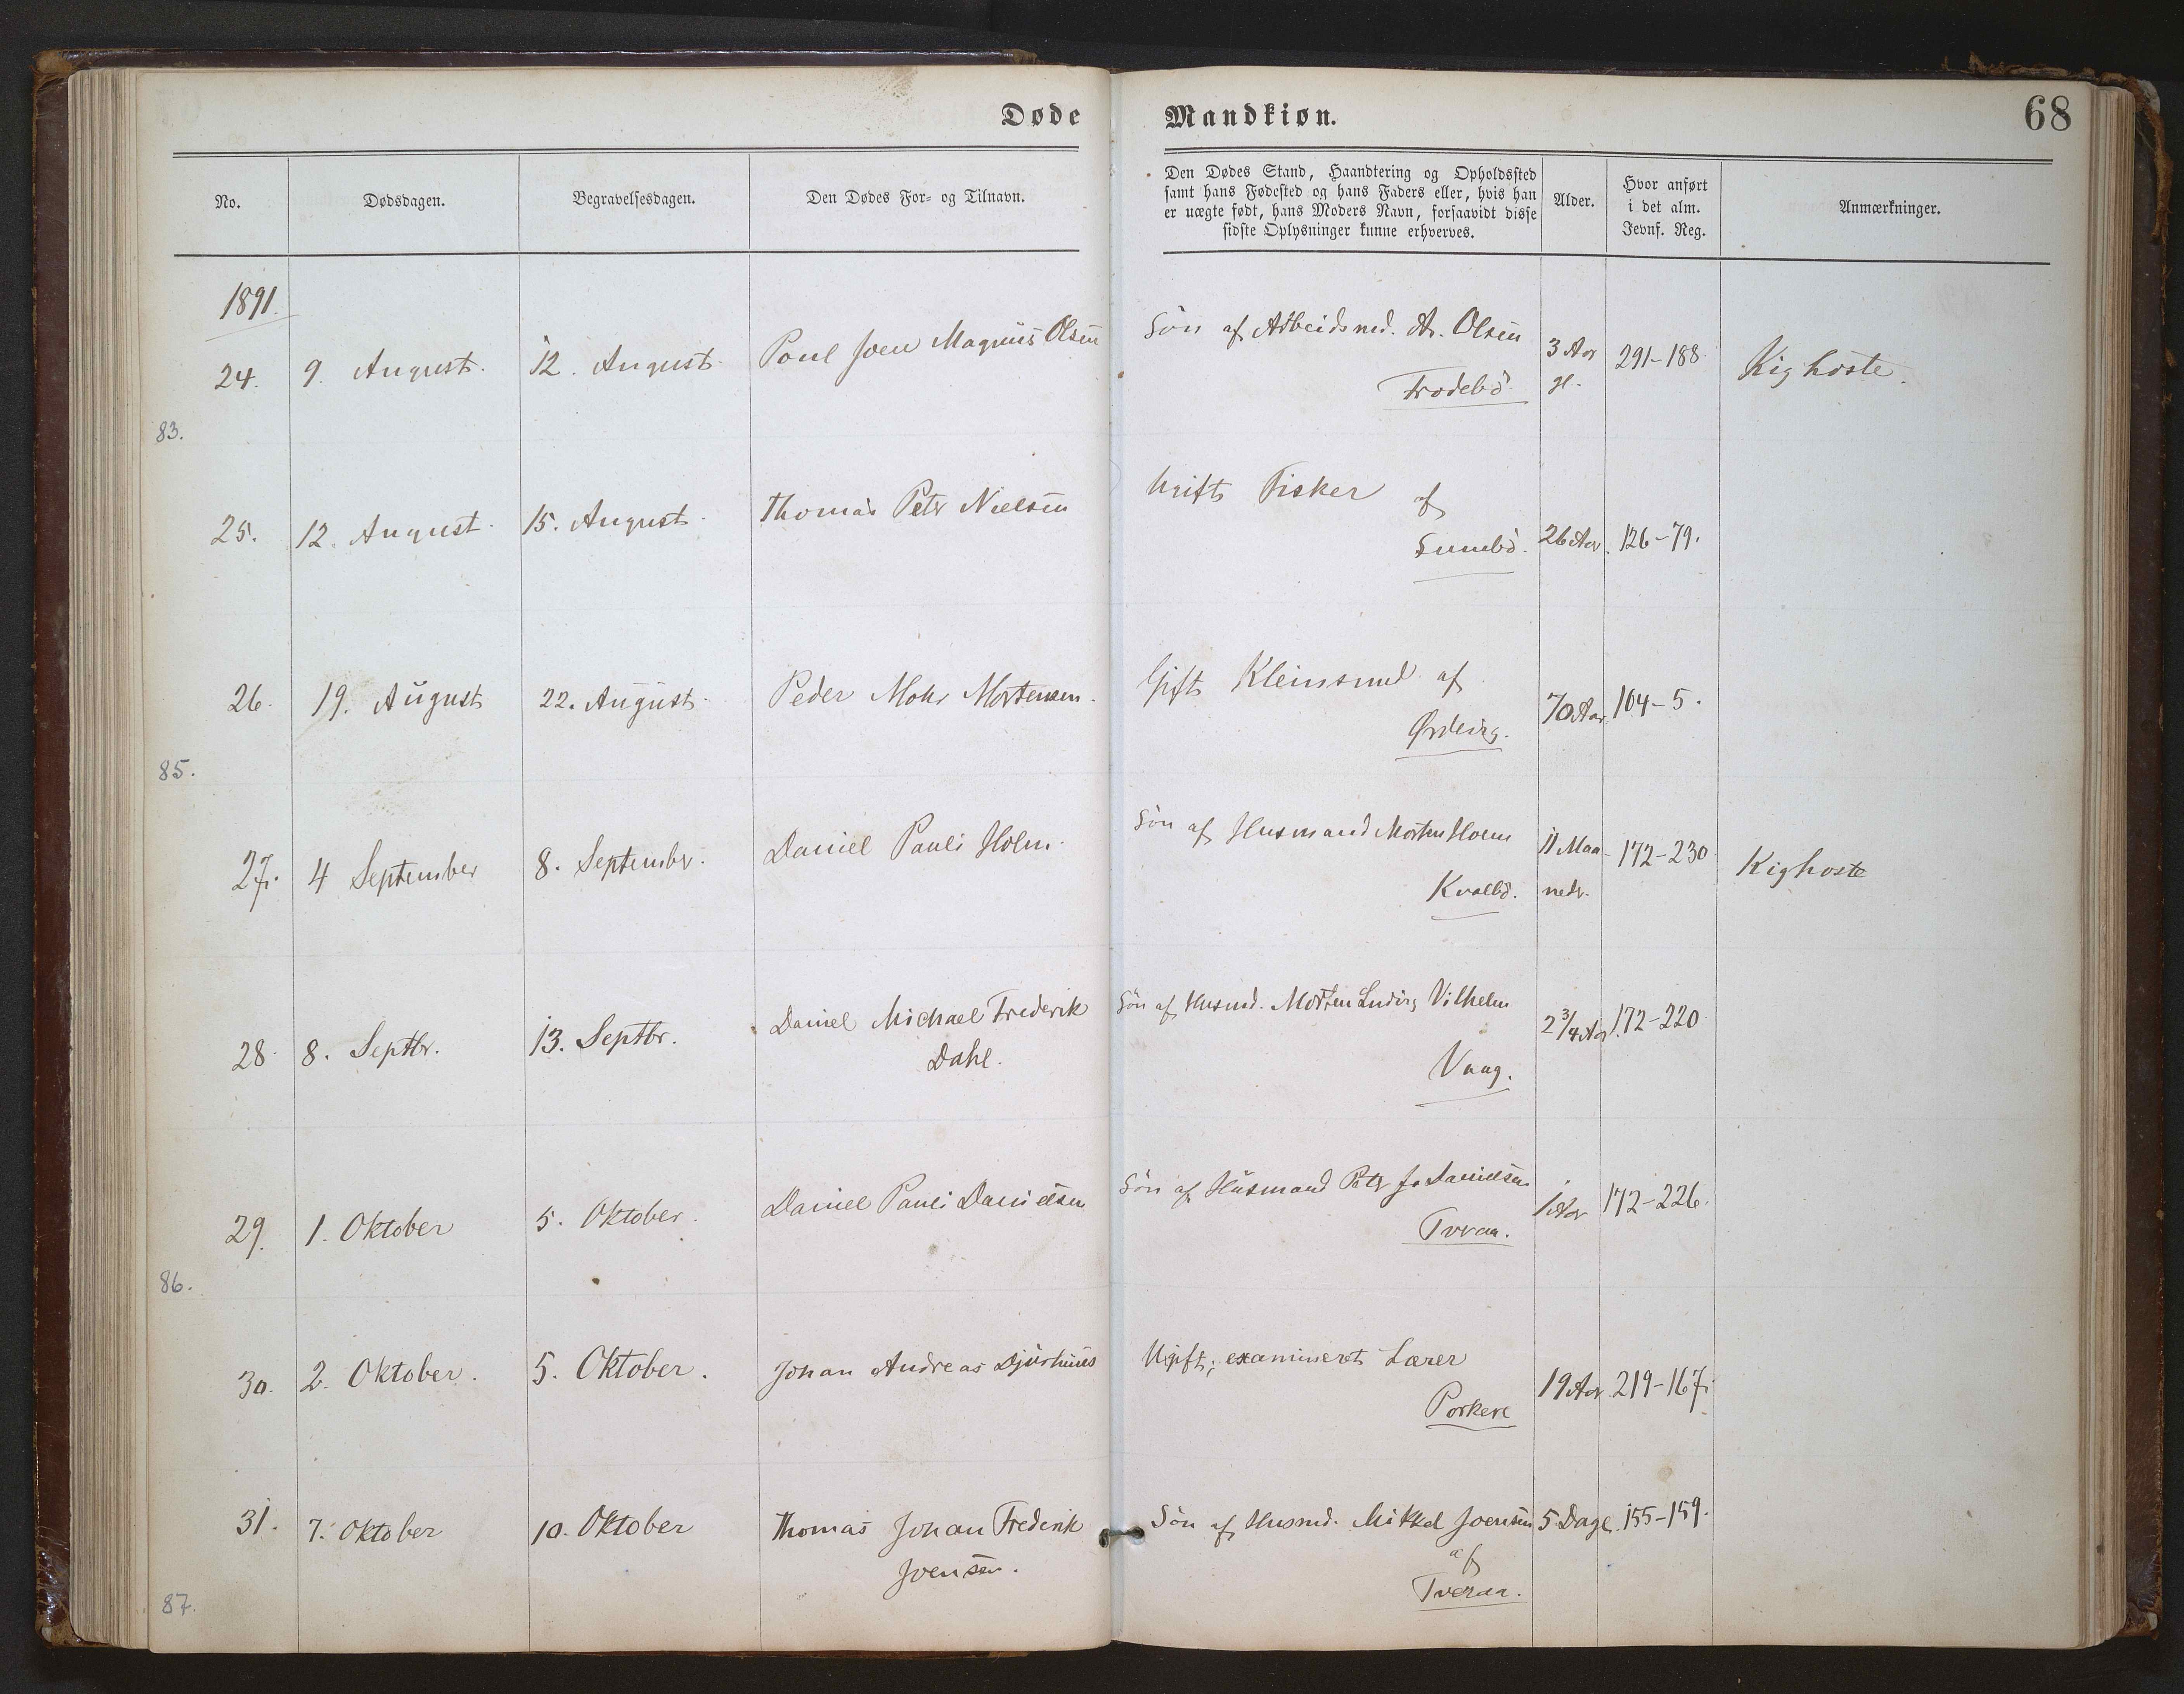 Døde Mandkiøn. 68
No. Dødsdagen. Begravelsesdagen. Den Dødes For- og Tilnavn.
Den Dødes Stand, Haandtering og Opholdssted
samt hans Fødested og hans Faders eller, hvis han
er uægte født, hans Moders Navn, forsaavidt disse
sidste Oplysninger kunne erhverves.
Alder.
Hvor anført
i det alm.
Jevnf. Reg.
Anmærkninger.
1891.
24. 9. August. 12. August. Poul Joen Magnus Olsen Søn af Arbeidsmd. A. Olsen 3 Aar 291-188. Kighoste.
Frodebö gl.
83.
25. 12. August. 15. August. Thomas Peter Nielsen Ugift Fisker af
Sumbö. 26 Aar. 126-79.
26. 19. August 22. August. Peder Mohr Mortensen. Gift Kleinsmed af
Ørdevig. 70 Aar. 104-5.
85.
27. 4 September 8. September. Daniel Pauli Holm. Søn af Husmand Morten Holm 11 Maa- 172-230. Kighoste
Kvalbö. neder.
28. 8. Septbr. 13. Septbr. Daniel Michael Frederik Søn af Husmd. Morten Ludvig Vilhelm 2 3/4 Aar 172-220
Dahl. Vaag.
29. 1. Oktober 5. Oktober. Daniel Pauli Danielsen Søn af Husmand Peter Jo Danielsen 1 Aar 172-226.
Tvraa.
86.
30. 2. Oktober. 5. Oktober. Johan Andreas Djurhuus Ugift; examineret Lærer 19 Aar 219-167.
Porkere
31. 7. Oktober 10. Oktober Thomas Johan Frederik Søn af Husmd. Mikkel Joensen 5 Dage. 155-159.
Joensen. af
Tveraa.
87.